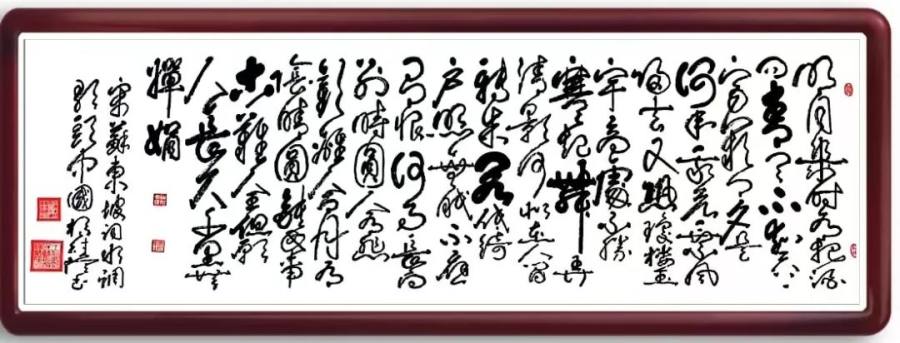 明月幾時有把酒
问青天不知天上
宫阙今夕是
何年我欲乘風
歸去又恐瓊樓玉
宇高處不勝
寒起舞弄
清影何似在人间
轉朱阁低綺
户照無眠不應
有恨何事長向
别時圓人有悲
歡離合月有
陰晴圓缺此事
古難全但願
人長久千里共
嬋娟
宋蘇東坡詞水調
歌頭中國